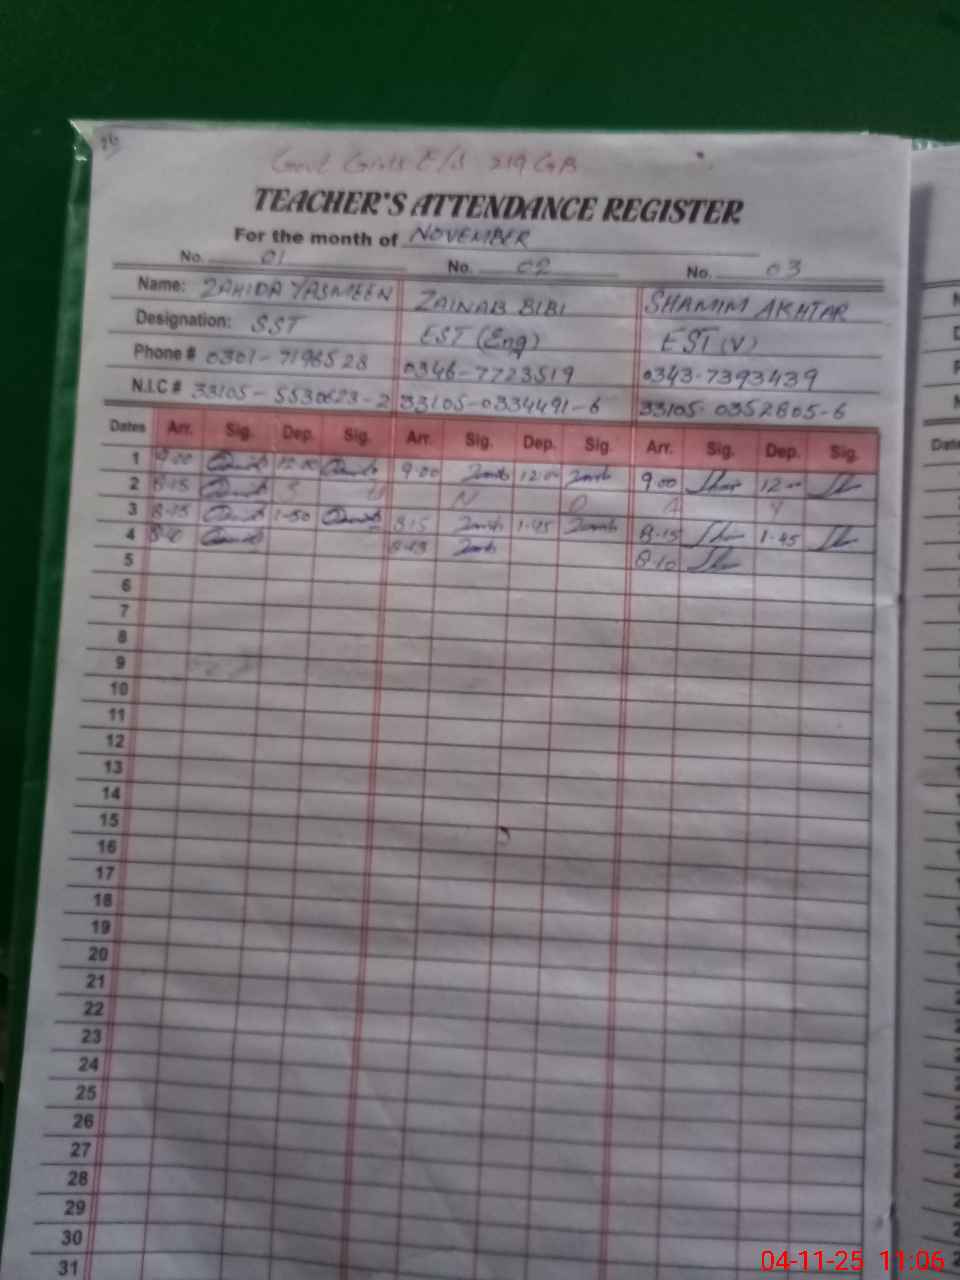 Govt Girls E/S 219 GB
TEACHER'S ATTENDANCE REGISTER
For the month of NOVEMBER
No. 01 No. 02 No. 03
Name: ZAHIDA YASMEEN ZAINAB BIBI SHAMIM AKHTAR
Designation: SST EST (Eng) EST (V)
Phone # 0301-7198528 0346-7723519 0343-7393439
N.I.C # 33105-5530623-2 33105-0334491-6 33105-0352805-6
Dates Arr. Sig. Dep. Sig. Arr. Sig. Dep. Sig. Arr. Sig. Dep. Sig.
1 9-00 12-00 9-00 12-00 9-00 12-00
2 8-15 S U N D A Y
3 8-15 1-50 8-15 1-45 8-15 1-45
4 8-13 8-10
5
6
7
8
9
10
11
12
13
14
15
16
17
18
19
20
21
22
23
24
25
26
27
28
29
30
31
Date
04-11-25 11:06